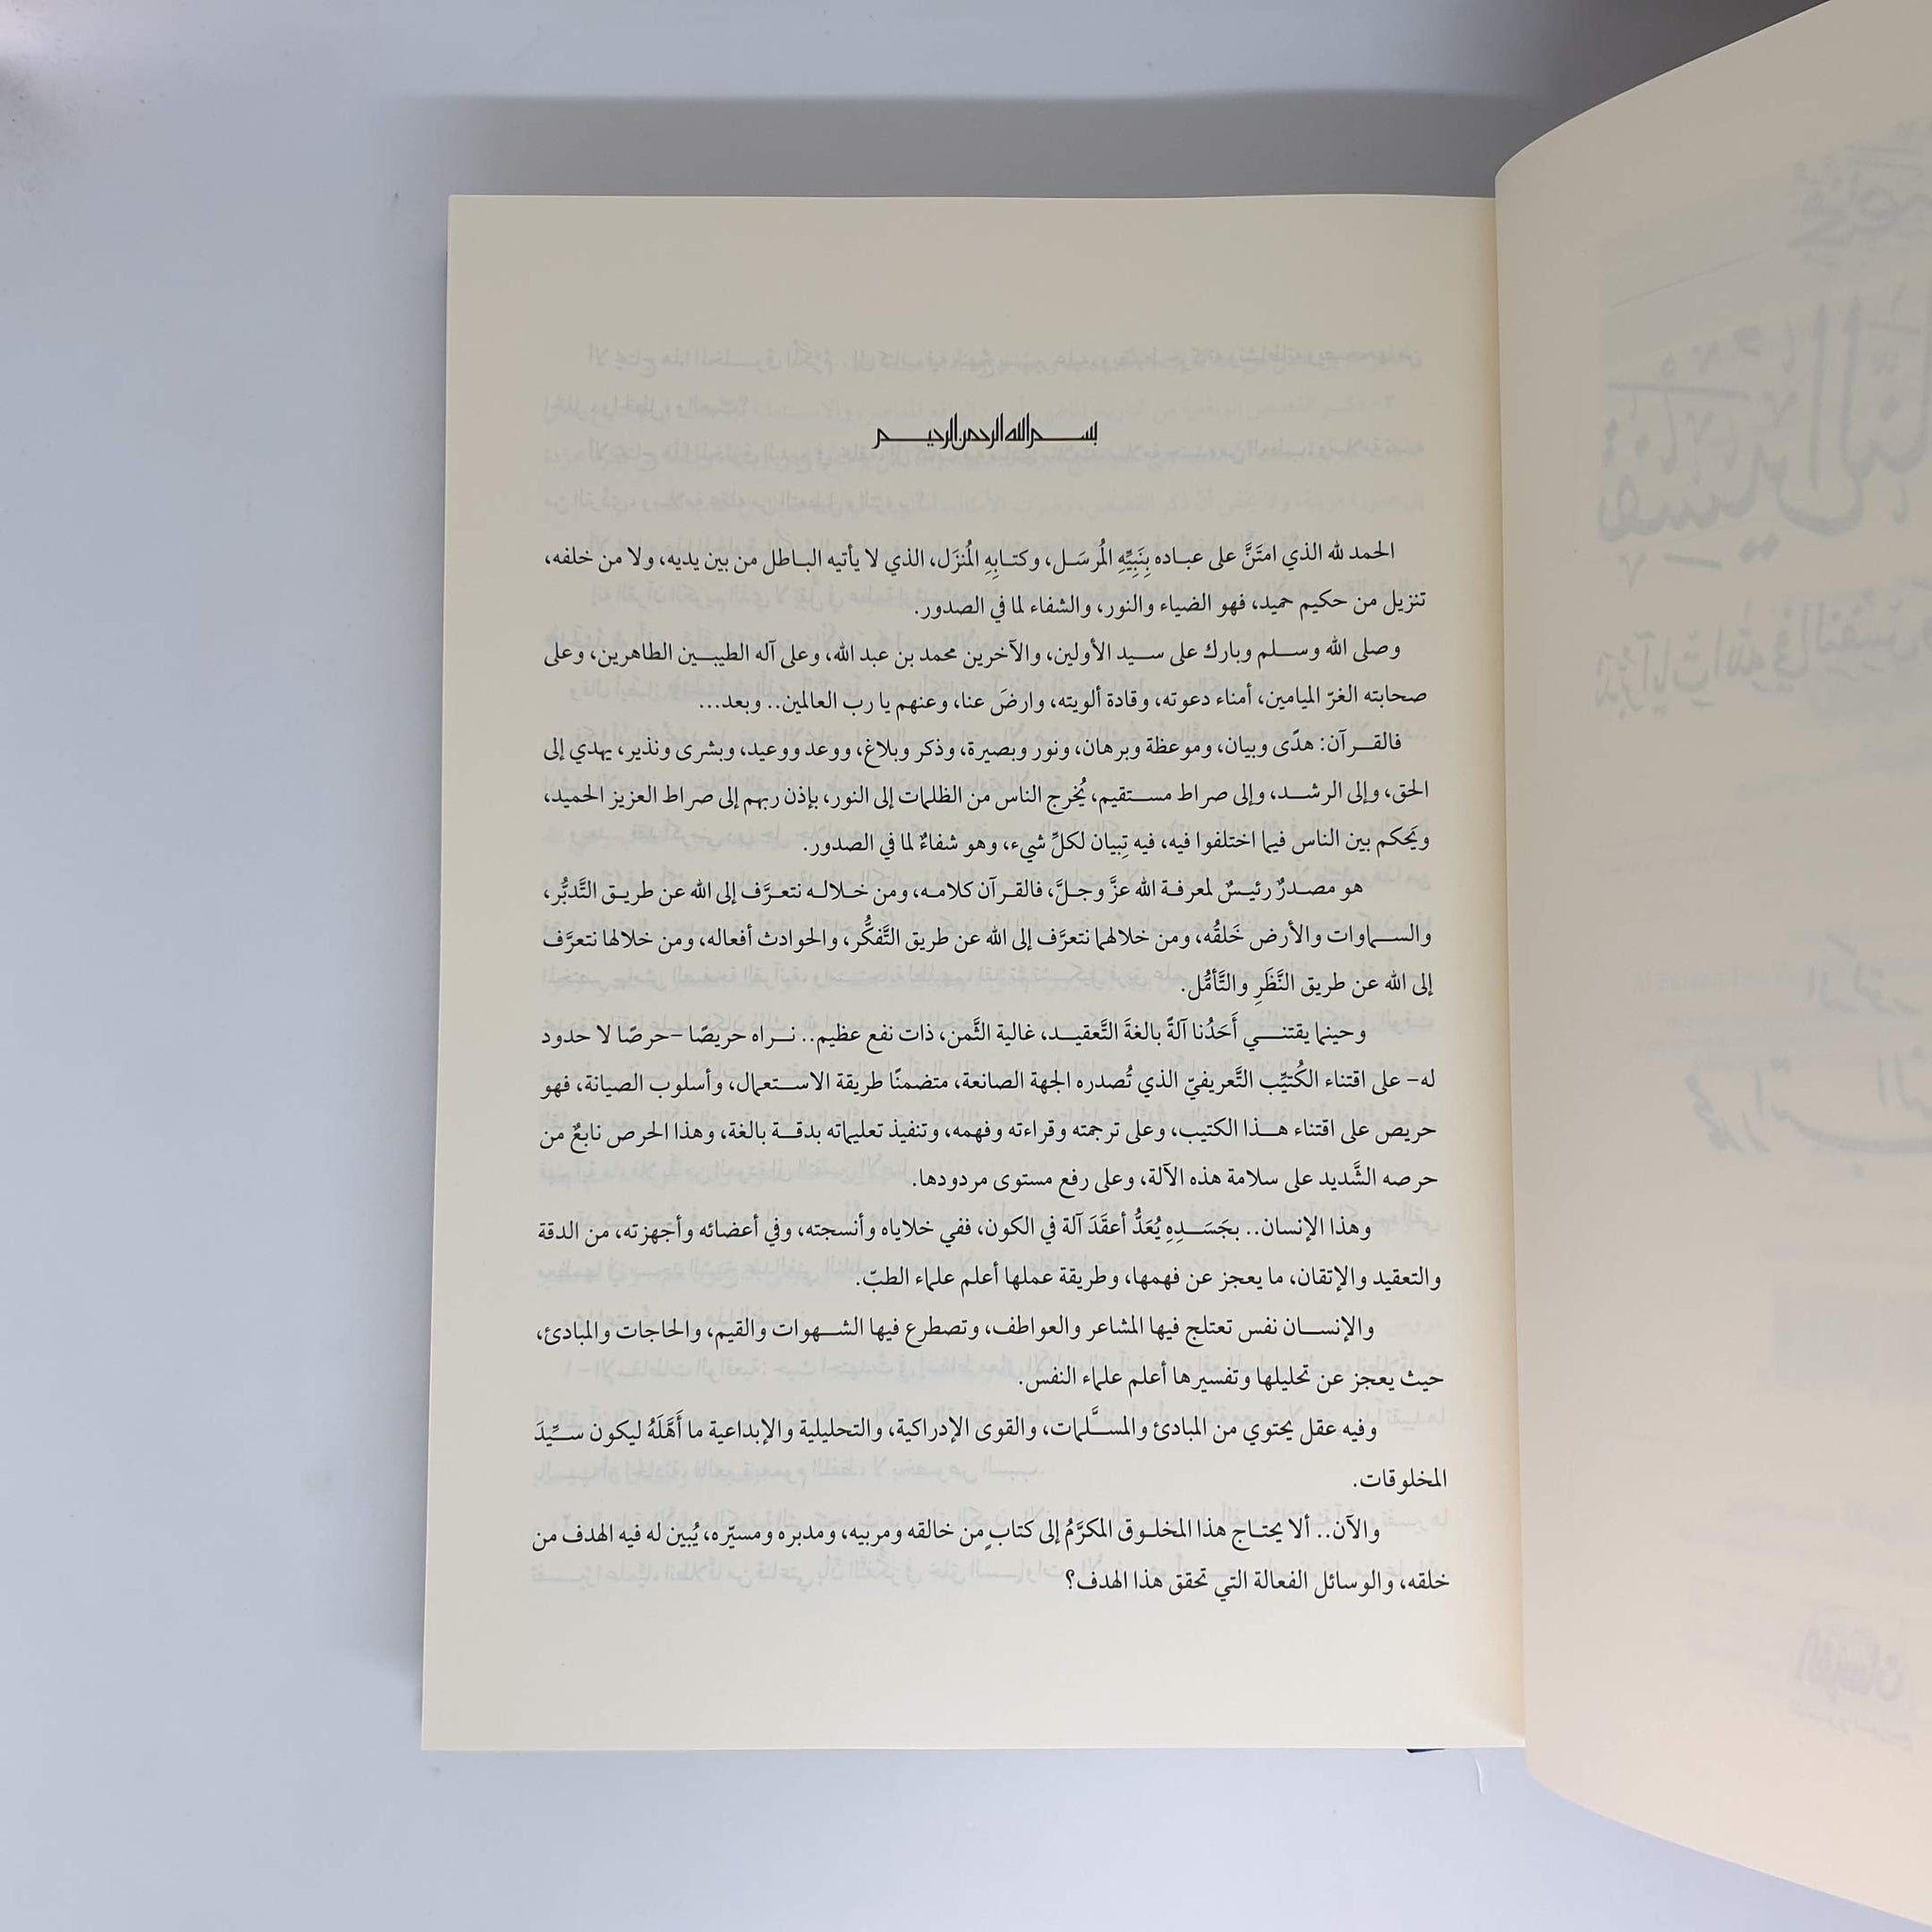 بسم الله الرحمن الرحيم
الحمد لله الذي امتَنَّ على عباده بِنَبِيِّهِ المُرسَل، وكتابِهِ المُنزَل، الذي لا يأتيه الباطل من بين يديه، ولا من خلفه،
تنزيل من حكيم حميد، فهو الضياء والنور، والشفاء لما في الصدور.
وصلى الله وسلم وبارك على سيد الأولين، والآخرين محمد بن عبد الله، وعلى آله الطيبين الطاهرين، وعلى
صحابته الغرّ الميامين، أمناء دعوته، وقادة ألويته، وارضَ عنا، وعنهم يا رب العالمين.. وبعد...
فالقرآن: هدًى وبيان، وموعظة وبرهان، ونور وبصيرة، وذكر وبلاغ، ووعد ووعيد، وبشرى ونذير، يهدي إلى
الحق، وإلى الرشد، وإلى صراط مستقيم، يُخرج الناس من الظلمات إلى النور، بإذن ربهم إلى صراط العزيز الحميد،
ويَحكم بين الناس فيما اختلفوا فيه، فيه تِبيان لكلِّ شيء، وهو شفاءٌ لما في الصدور.
هو مصدرٌ رئيسٌ لمعرفة الله عزَّ وجلَّ، فالقرآن كلامه، ومن خلاله نتعرَّف إلى الله عن طريق التَّدبُّر،
والسماوات والأرض خَلقُه، ومن خلالهما نتعرَّف إلى الله عن طريق التَّفكُّر، والحوادث أفعاله، ومن خلالها نتعرَّف
إلى الله عن طريق النَّظَرِ والتَّأمُّل.
وحينما يقتني أَحَدُنا آلةً بالغةَ التَّعقيد، غالية الثَّمن، ذات نفع عظيم.. نراه حريصًا -حرصًا لا حدود
له- على اقتناء الكُتيِّب التَّعريفيّ الذي تُصدره الجهة الصانعة، متضمنًا طريقة الاستعمال، وأسلوب الصيانة، فهو
حريص على اقتناء هذا الكتيب، وعلى ترجمته وقراءته وفهمه، وتنفيذ تعليماته بدقة بالغة، وهذا الحرص نابعٌ من
حرصه الشَّديد على سلامة هذه الآلة، وعلى رفع مستوى مردودها.
وهذا الإنسان.. بجَسَدِهِ يُعَدُّ أعقَدَ آلة في الكون، ففي خلاياه وأنسجته، وفي أعضائه وأجهزته، من الدقة
والتعقيد والإتقان، ما يعجز عن فهمها، وطريقة عملها أعلم علماء الطبّ.
والإنسان نفس تعتلج فيها المشاعر والعواطف، وتصطرع فيها الشهوات والقيم، والحاجات والمبادئ،
حيث يعجز عن تحليلها وتفسيرها أعلم علماء النفس.
وفيه عقل يحتوي من المبادئ والمسلَّمات، والقوى الإدراكية، والتحليلية والإبداعية ما أَهَّلَهُ ليكون سيِّدَ
المخلوقات.
والآن.. ألا يحتاج هذا المخلوق المكرَّمُ إلى كتابٍ من خالقه ومربيه، ومدبره ومسيّره، يُبين له فيه الهدف من
خلقه، والوسائل الفعالة التي تحقق هذا الهدف؟